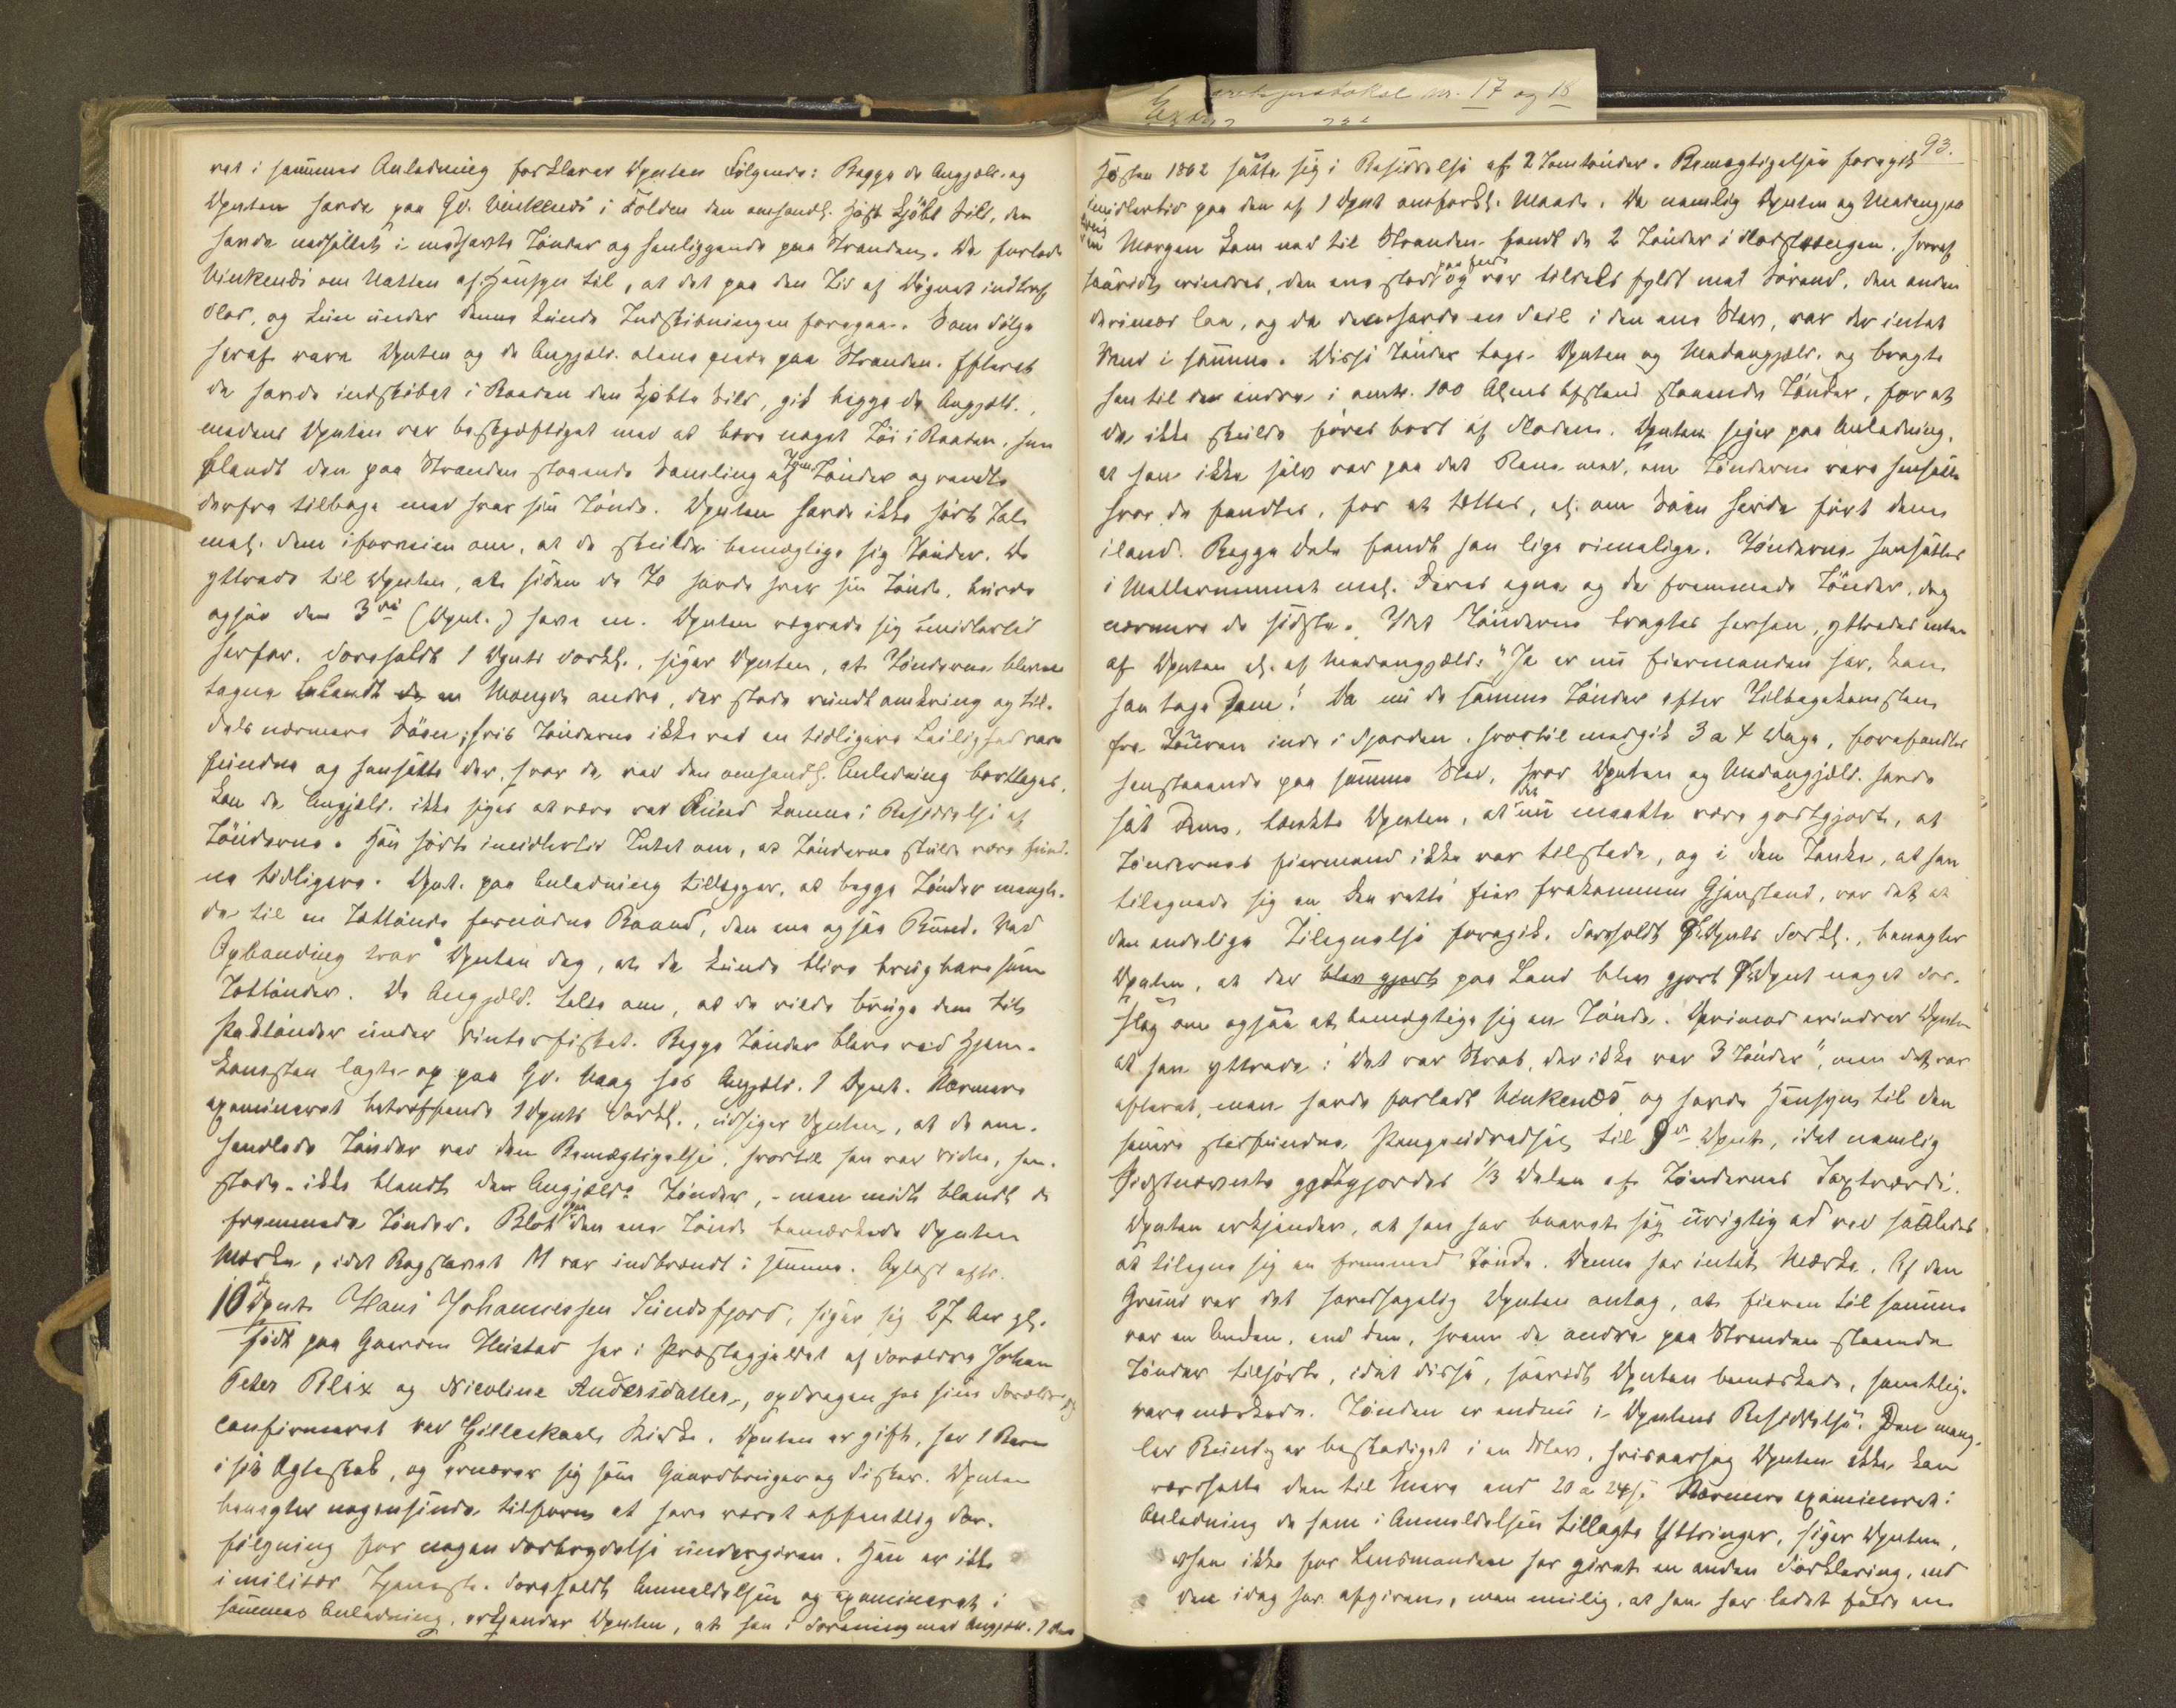 Extraretsprotokol nr. 17 og 18
ret i sammes Anledning forklarer Dpnten Følgende: Begge de Angjæld. og
Dpnten havde paa Gd. Vinkenæs i Folden den omhandl. Høst kjøbt Sild, den
havde nedsaltet i medhavte Tønder og henliggende paa Stranden. De forlode
Vinkenæs om Natten af Hensyn til, at det paa den Tid af Døgnet indtraf
Flod, og kun under denne kunde Indskibningen foregaa. Som Følge
heraf vare Dpnten og de Angjæld. alene paa Stranden. Efterat
de havde indskibet i Baaden den kjøbte Sild, gik begge de Angjæld.,
medens Dpnten var beskjæftiget med at bære noget Tøi i Baaden, hen
blandt den paa Stranden staaende Samling af Tom Tønder og vendte
derfra tilbage med hver sin Tønde. Dpnten havde ikke hørt Tale
mel. dem iforveien om, at de skulde bemægtige sig Tønder. De
yttrede til Dpnten, at siden de To havde hver sin Tønde, burde
ogsaa den 3die (Dpnt.) have en. Dpnten vægrede sig imidlertid
herfor. Foreholdt 1 Dpnts Forkl., siger Dpnten, at Tønderne bleve
tagne blandt en Mængde andre, der stode rundt omkring og til-
dels nærmere Søen; hvis Tønderne ikke ved en tidligere Leilighed vare
fundne og hensatte der, hvor de ved den omhandl. Anledning borttoges,
kan de Angjæld. ikke siges at være ved Fund komne i Besiddelse af
Tønderne. Han hørte imidlertid Intet om, at Tønderne skulde være fund-
ne tidligere. Dpnt. paa Anledning tillægger, at begge Tønder mangle-
de til en Tættønde fornødne Baand, den ene ogsaa Bund. Ved
Opbanding tror Dpnten dog, at de kunde blive brugbare som
Tættønder. De Angjæld. talte om, at de vilde bruge dem til
Saltønder under Vinterfisket. Begge Tønder bleve ved Hjem-
komsten lagte op paa Gd. Vaag hos Angjæld. 1 Dpnt. Nærmere
examineret betræffende 1 Dpnts Forkl., udsiger Dpnten, at de om-
handlede Tønder ved den Bemægtigelse, hvortil han var Vidne, hen-
stode – ikke blandt de Angjælds Tønder, – men midt blandt de
fremmede Tønder. Blot paa den ene Tønde bemærkede Dpnten
Mærke, idet Bogstavet M var indbrændt i samme. Oplæst aftr.
10 de Dpnt. Hans Johannessen Sundsfjord, siger sig 27 Aar gl.
født paa Gaarden Neistad her i Præstegjældet af Forældre Johan
Peter Blix og Nicoline Andersdatter, opdragen hos sine Forældre og
confirmeret ved Gilleskaals Kirke. Dpnten er gift, har 1 Barn
i sit Ægteskab, og ernærer sig som Gaardbruger og Fisker. Dpnten
benægter nogensinde tilforn at have været offentlig For-
følgning for nogen Forbrydelse undergiven. Han er ikke
i militær Tjeneste. Foreholdt Anmeldelsen og examineret i
sammes Anledning, erkjender Dpnten, at han i Forening med Angjæld. 1
93.
Høsten 1862 satte sig i Besiddelse af 2 Tomtønder. Bemægtigelsen foregik
imidlertid paa den af 1 Dpnt omforkl. Maade. Da nemlig Dpnten og Medangjæ
en Morgen kom ned til Stranden fandt de 2 Tønder i Flodstængen, hvoraf
saavidt erindres, den ene stod paa Ende og var tildels fyldt med Søvand, den anden
derimod laa, og da den havde en Feil i den ene Stav, var der intet
Vand i samme. Disse Tønder toge Dpnten og Medangjæld. og bragte
hen til de andre i omtr. 100 Alens Afstand staaende Tønder, for at
de ikke skulde føres bort af Floden. Dpnten siger paa Anledning,
at han ikke selv var paa det Rene med, om Tønderne vare hensatte
hvor de fandtes, for at tættes, el. om Søen havde ført dem
iland. Begge Dele fandt han lige rimelige. Tønderne hensattes
i Mellemrummet mel. deres egne og de fremmede Tønder, dog
nærmere de sidste. Idet Tønderne bragtes herhen, yttredes enten
af Dpnten el. af Medangjæld: "Ja er nu Eiermanden her, kan
han tage dem"! Da nu de samme Tønder efter Tilbagekomsten
fra Touren inde i Fjorden, hvortil medgik 3 a 4 Dage, forefandtes
henstaaende paa samme Sted, hvor Dpnten og Medangjæld. havde
sat dem, tænkte Dpnten, at det nu maatte være godtgjort, at
Tøndernes Eiermand ikke var tilstede, og i den Tanke, at han
tilegnede sig en den rette Eier frakommen Gjenstand, var det at
den endelige Tilegnelse foregik. Foreholdt 9de Dpnts Forkl., benægter
Dpnten, at der blev gjort paa Land blev gjort 9de Dpnt noget For-
slag om ogsaa at bemægtige sig en Tønde. Derimod erindrer Dpnten
at han yttrede: "Det var Skade, der ikke var 3 Tønder", men det var
efterat man havde forladt Vinkenæs, og havde Hensyn til den
senere stedfundne Pengeudredsel til 9de Dpnt, idet nemlig
Sidstnævnte godtgjordes 1/3 Delen af Tøndernes Taxtværdi.
Dpnten erkjender, at han har baaret sig urigtig ad ved saaledes
at tilegne sig en fremmed Tønde. Denne har intet Mærke. Af den
Grund var det hovedsagelig Dpnten antog, at Eieren til samme
var en Anden, end den, hvem de andre paa Stranden staaende
Tønder tilhørte, idet disse, saavidt Dpnten bemærkede, samtlige
vare mærkede. Tønden er endnu i Dpntens Besiddelse. Den mang-
ler Bund og er beskadiget i en Stav, hvisaarsag Dpnten ikke kan
værdsætte den til Mere end 20 a 24 ß. Nærmere examineret i
Anledning de ham i Anmeldelsen tillagte Yttringer, siger Dpnten,
at han ikke for Lensmanden har givet en anden Forklaring, end
den idag har afgivne, men mulig, at han har ladet falde en